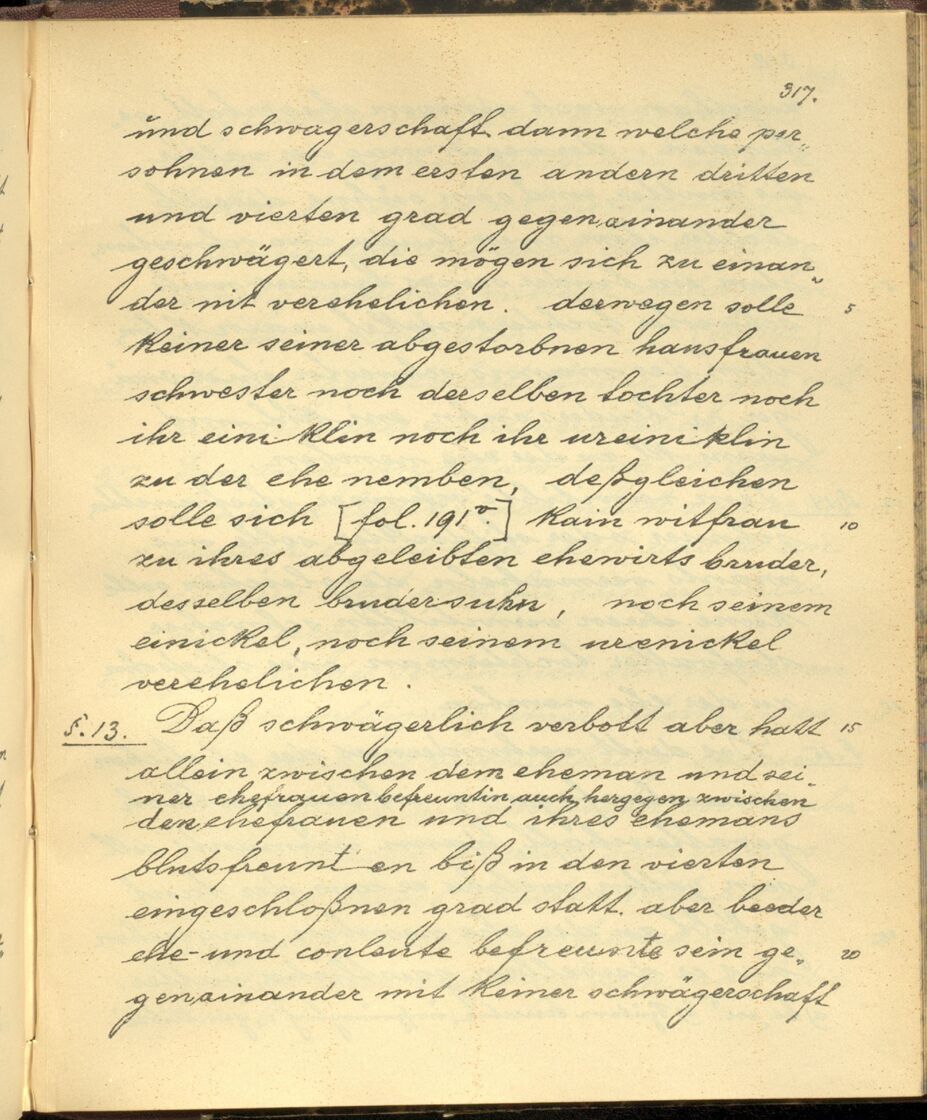 317.
und schwagerschaft. dann welche per„
sohnen in dem ersten andern dritten
und vierten grad gegen ainander
geschwägert, die mögen sich zu einan„
der nit verehelichen. derwegen solle 5
keiner seiner abgestorbnen hausfrauen
schwester noch derselben tochter noch
ihr einiklin noch ihr ureiniklin
zu der ehe nemben, deßgleichen
solle sich [fol. 191v.] kain witfrau 10
zu ihres abgeleibten ehewirts bruder,
desselben brudersuhn, noch seinem
einickel, noch seinem urenickel
verehelichen.
§. 13. Daß schwägerlich verbott aber hatt 15
allein zwischen dem eheman und sei„
ner ehefrauen befreuntin, auch hergegen zwischen
den ehefrauen und ihres ehemans
blutsfreunten biß in den vierten
eingeschloßnen grad statt. aber beeder
ehe- und conleute befreunte sein ge„ 20
gen ainander mit keiner schwägerschaft